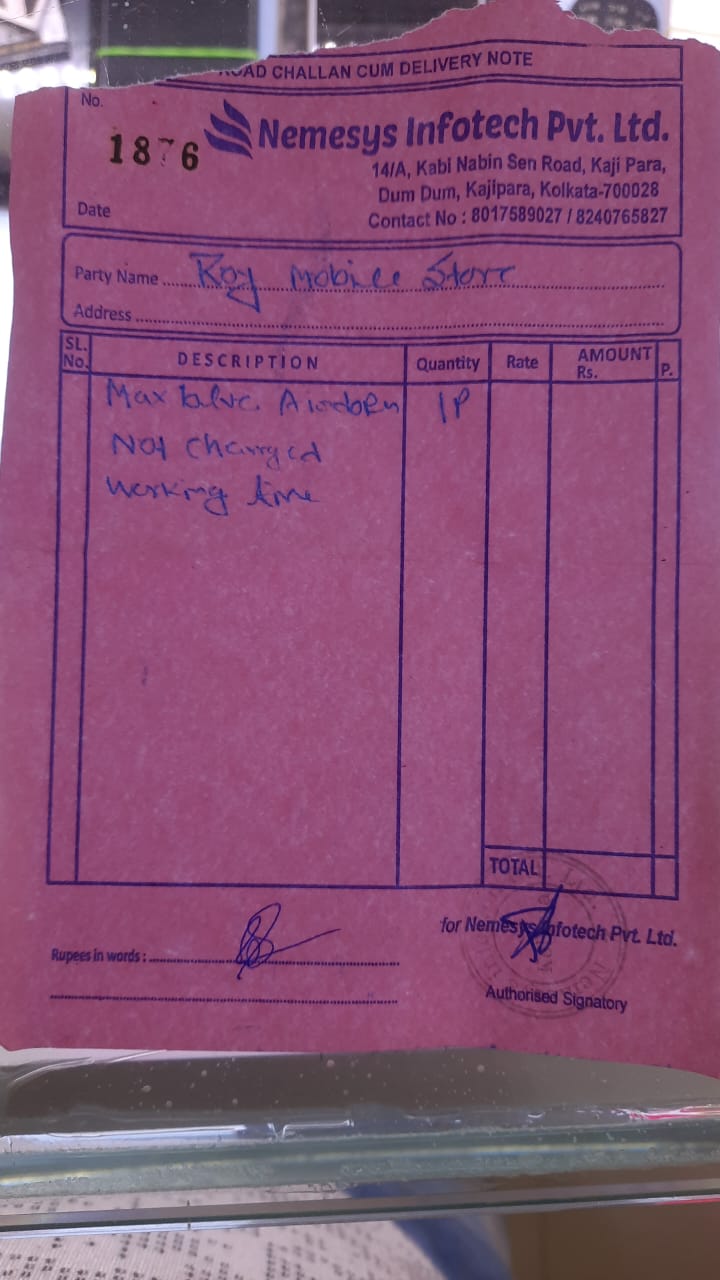 ROAD CHALLAN CUM DELIVERY NOTE
No.
1876
Nemesys Infotech Pvt. Ltd.
14/A, Kabi Nabin Sen Road, Kaji Para,
Dum Dum, Kajipara, Kolkata-700028
Date
Contact No : 8017589027 / 8240765827
Party Name Roy Mobile Store
Address
SL. No. DESCRIPTION Quantity Rate AMOUNT Rs. P.
Max 1P
Not charged
Working time
TOTAL
for Nemesys Infotech Pvt. Ltd.
Rupees in words :
Authorised Signatory